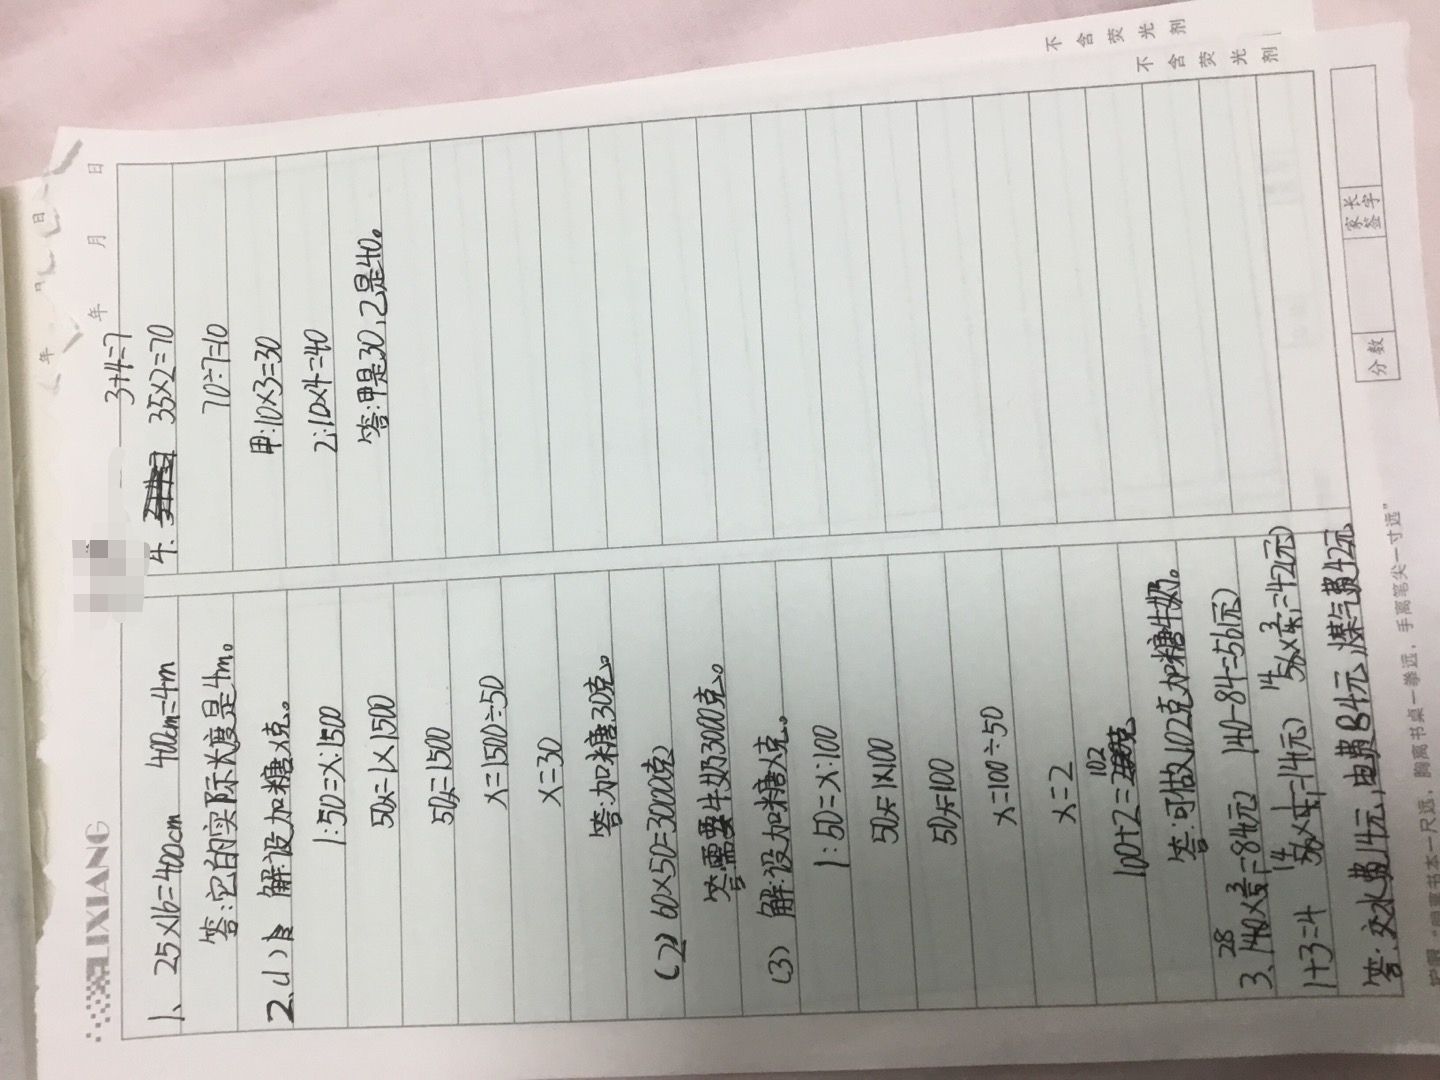 LIXIANG
1、25×16=400cm 400cm=4m
答:它的实际长度是4m。
2、(1) 解:设加糖x克。
1:50=x:1500
50x=1×1500
50x=1500
x=1500÷50
x=30
答:加糖30克。
(2) 60×50=3000(克)
答:需要牛奶3000克。
(3) 解:设加糖x克。
1:50=x:100
50x=1×100
50x=100
x=100÷50
x=2
100+2=102
答:可做102克加糖牛奶。
3、140×3/5=84(元) 140-84=56(元)
28
1+3=4 56×1/4=14(元) 56×3/4=42(元)
14 14
答:交水费14元,电费84元,煤气费42元
年 月 日
3+4=7
4、35×2=70
70÷7=10
甲:10×3=30
乙:10×4=40
答:甲是30,乙是40。
年 月 日
不含荧光剂
不含荧光剂
分数
家长签字
胸离书桌一拳远,手离笔尖一寸远"